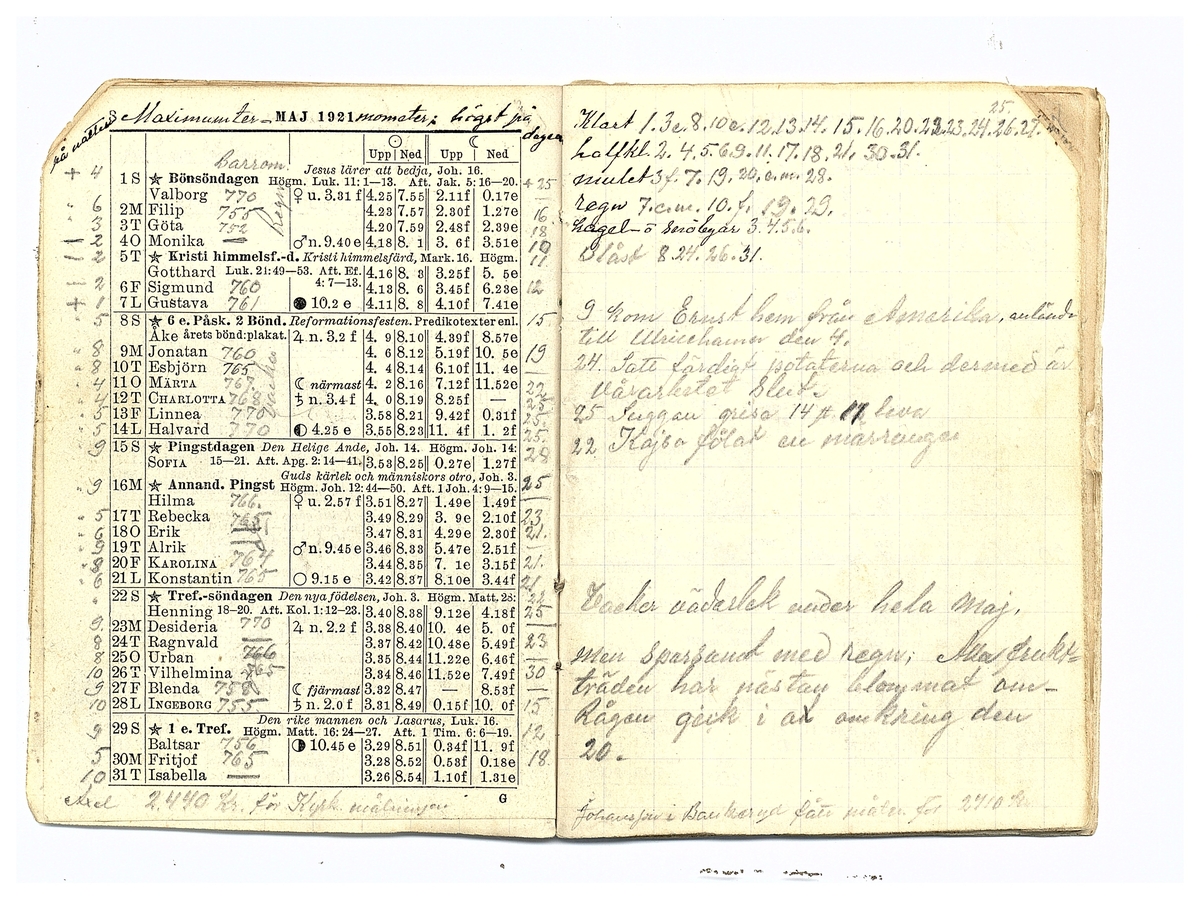 på natten
Maximumter- MAJ 1921 mometer; högst på
dagen
☉ ☾
Upp Ned Upp Ned
barrom.
Jesus lärer att bedja, Joh. 16.
+ 4 1 S ★ Bönsöndagen Högm. Luk. 11: 1—13. Aft. Jak. 5: 16—20. +25
Valborg 770 ♀ u. 3.31 f 4.25 7.55 2.11f 0.17e —
6 2M Filip 755 regn 4.23 7.57 2.30f 1.27e 16
3 3T Göta 752 4.20 7.59 2.48f 2.39e 18
— 2 4O Monika — ♂ n. 9.40 e 4.18 8. 1 3. 6f 3.51e 10
— 2 5T ★ Kristi himmelsf.-d. Kristi himmelsfärd, Mark. 16. Högm. 11
Gotthard Luk. 24: 49—53. Aft. Ef. 4: 7—13. 4.16 8. 3 3.25f 5. 5e
— 2 6F Sigmund 760 4.13 8. 6 3.45f 6.23e 12
+ 1 7L Gustava 761 ● 10.2 e 4.11 8. 8 4.10f 7.41e
5 8S ★ 6 e. Påsk. 2 Bönd. Reformationsfesten. Predikotexter enl. 15.
Åke årets bönd:plakat. ♃ n. 3.2 f 4. 9 8.10 4.39f 8.57e
8 9M Jonatan 760 4. 6 8.12 5.19f 10. 5e 19
8 10T Esbjörn 765 4. 4 8.14 6.10f 11. 4e —
4 11O MÄRTA 767. ☾ närmast 4. 2 8.16 7.12f 11.52e 22
4 12T CHARLOTTA 768 vacker ♄ n. 3.4 f 4. 0 8.19 8.25f —
5 13F Linnea 770 3.58 8.21 9.42f 0.31f
5 14L Halvard 770 ◐ 4.25 e 3.55 8.23 11. 4f 1. 2f 25.
9 15S ★ Pingstdagen Den Helige Ande, Joh. 14. Högm. Joh. 14: 28
SOFIA 15—21. Aft. Apg. 2: 14—41. 3.53 8.25 0.27e 1.27f
Guds kärlek och människors otro, Joh. 3.
9 16M ★ Annand. Pingst Högm. Joh. 12: 44—50. Aft. 1 Joh. 4: 9—15. 25
Hilma 766. ♀ u. 2.57 f 3.51 8.27 1.49e 1.49f
5 17T Rebecka 765 3.49 8.29 3. 9e 2.10f 23
6 18O Erik — 3.47 8.31 4.29e 2.30f 21.
9 19T Alrik ♂ n. 9.45 e 3.46 8.33 5.47e 2.51f —
8 20F KAROLINA 764 3.44 8.35 7. 1e 3.15f 21.
6 21L Konstantin 765 ○ 9.15 e 3.42 8.37 8.10e 3.44f 21
22S ★ Tref.-söndagen Den nya födelsen, Joh. 3. Högm. Matt. 28: 22
Henning 18—20. Aft. Kol. 1: 12—23. 3.40 8.38 9.12e 4.18f 25
9. 23M Desideria 770 ♃ n. 2.2 f 3.38 8.40 10. 4e 5. 0f —
8 24T Ragnvald — 3.37 8.42 10.48e 5.49f 23
8 25O Urban 766 3.35 8.44 11.22e 6.46f —
10 26T Vilhelmina 765 3.34 8.46 11.52e 7.49f 30
9 27F Blenda 758 ☾ fjärmast 3.32 8.47 — 8.53f —
10 28L INGEBORG 755. ♄ n. 2.0 f 3.31 8.49 0.15f 10. 0f 15
Den rike mannen och Lasarus, Luk. 16.
9 29S ★ 1 e. Tref. Högm. Matt. 16: 24—27. Aft. 1 Tim. 6: 6—19. 12
Baltsar 756 ◑ 10.45 e 3.29 8.51 0.34f 11. 9f
5 30M Fritjof 765 3.28 8.52 0.53f 0.18e 18.
10 31T Isabella — 3.26 8.54 1.10f 1.31e
Axel 2,440 Kr. för Kyrk målningen
G
25.
Klart 1. 3e. 8. 10e. 12. 13. 14. 15. 16. 20. 22. 23. 24. 26. 27.
halfkl. 2. 4. 5. 6. 9. 11. 17. 18. 21. 30. 31.
mulet 3f. 7. 19. 20. e.m. 28.
regn 7. e.m. 10. f. 19. 29.
hagel- o snöbyar 3. 4. 5. 6.
Blåst 8. 24. 26. 31.
9 kom Ernst hem från Amerika, anlände
till Ulricehamn den 4.
24. Satt färdigt potaterna och dermed är
vårarbetet slut.
25 Suggan grisa 14 st 11 leva
22 Kajsa fölat en märrunge
Vacker väderlek under hela Maj.
men sparsamt med regn; Alla frukt-
träden har nästan blommat om-
Rågen gick i ax omkring den
20.
Johansson i Bankeryd fått måla för 2710 Kr